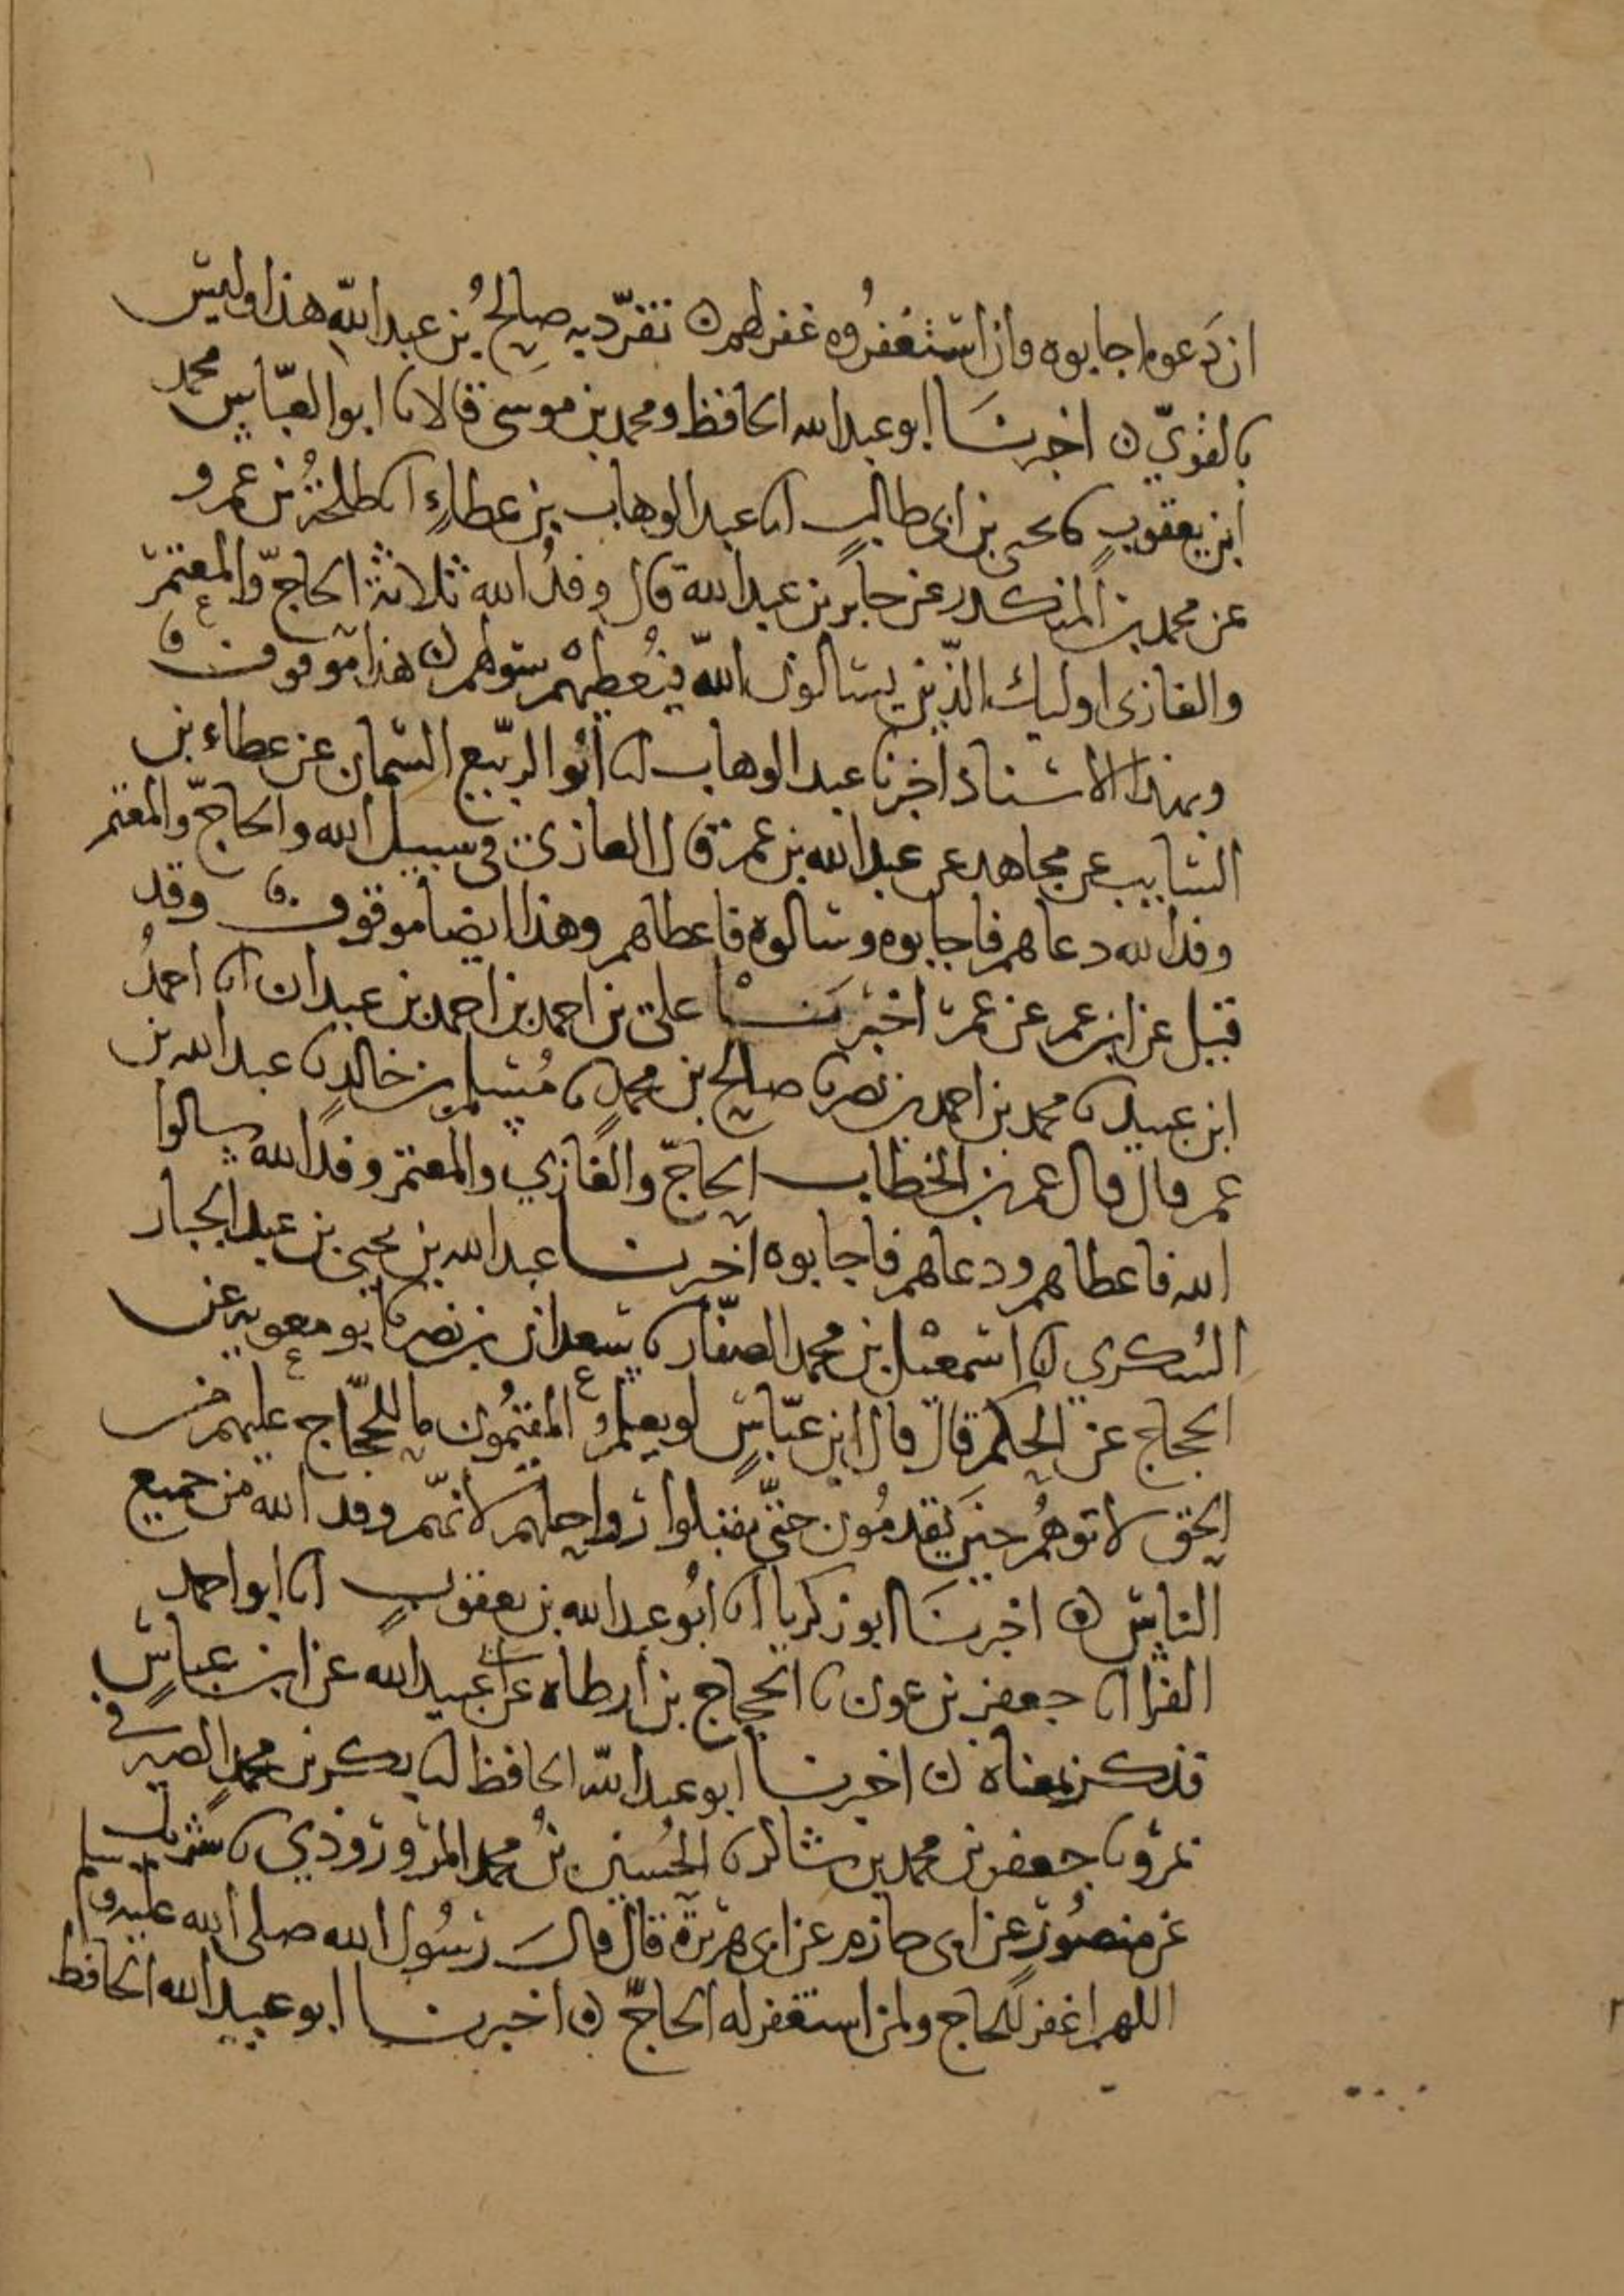 ان دعوه اجابوه وان استغفروه غفر لهم ن تفرد به صالحُ بن عبد الله هذا وليس
بالقوي ن اخبرنا ابو عبد الله الحافظ ومحمد بن موسى قالا نا ابو العباس محمد
ابن يعقوب نا يحيى بن ابي طالب انا عبد الوهاب بن عطاءٍ انا طلحةُ بن عمرو
عن محمد بن المنكدر عن جابر بن عبد الله قال وفدُ الله ثلاثة الحاجّ والمعتمر
والغازي اوليك الذين يسالون الله فيُعطيهم سولهم ن هذا موقوف
وبهذا الاسناد اخبرنا عبد الوهاب انا ابو الربيع السمان عن عطاء بن
السايب عن مجاهد عن عبد الله بن عمر قال الغازي في سبيل الله والحاجّ والمعتمر
وفد الله دعاهم فاجابوه وسالوه فاعطاهم وهذا ايضا موقوف وقد
قيل عن ابن عمر عن عمر اخبرنا علي بن احمد بن احمد بن عبدان انا احمدُ
ابن عبيد نا محمد بن احمد بن نصر نا صالح بن محمد نا مُسلم بن خالد نا عبد الله بن
عمر قال قال عمر بن الخطاب الحاجّ والغازي والمعتمر وفد الله سالوا
الله فاعطاهم ودعاهم فاجابوه اخبرنا عبد الله بن يحيى بن عبد الجبار
السكري انا اسمعيل بن محمد الصفّار نا سعدان بن نصر نا ابو معوية عن
الحجاج عن الحكم قال قال ابن عبّاسٍ لو يعلمُ المقيمُون ما للحجّاج عليهم من
الحق لاتوهُم حين يقدمُون حتّى يقبلوا رواحلهم لانهم وفد الله من جميع
الناس ن اخبرنا ابو زكريا انا ابو عبد الله بن يعقوب انا ابو احمد
الفرا انا جعفر بن عون نا الحجاج بن ارطاه عن عبيد الله عن ابن عباسٍ
فذكر بمعناه ن اخبرنا ابو عبد الله الحافظ انا بكر بن محمدٍ الصيرفي
بمرو نا جعفر بن محمد بن شاكر نا الحُسين بنُ محمد المروروذي نا شريك
عن منصُورٍ عن ابي حازم عن ابي هريرة قال قال رسُول الله صلى الله عليه وسلم
اللهم اغفر للحاج ولمن استغفر له الحاجّ ن اخبرنا ابو عبد الله الحافظ